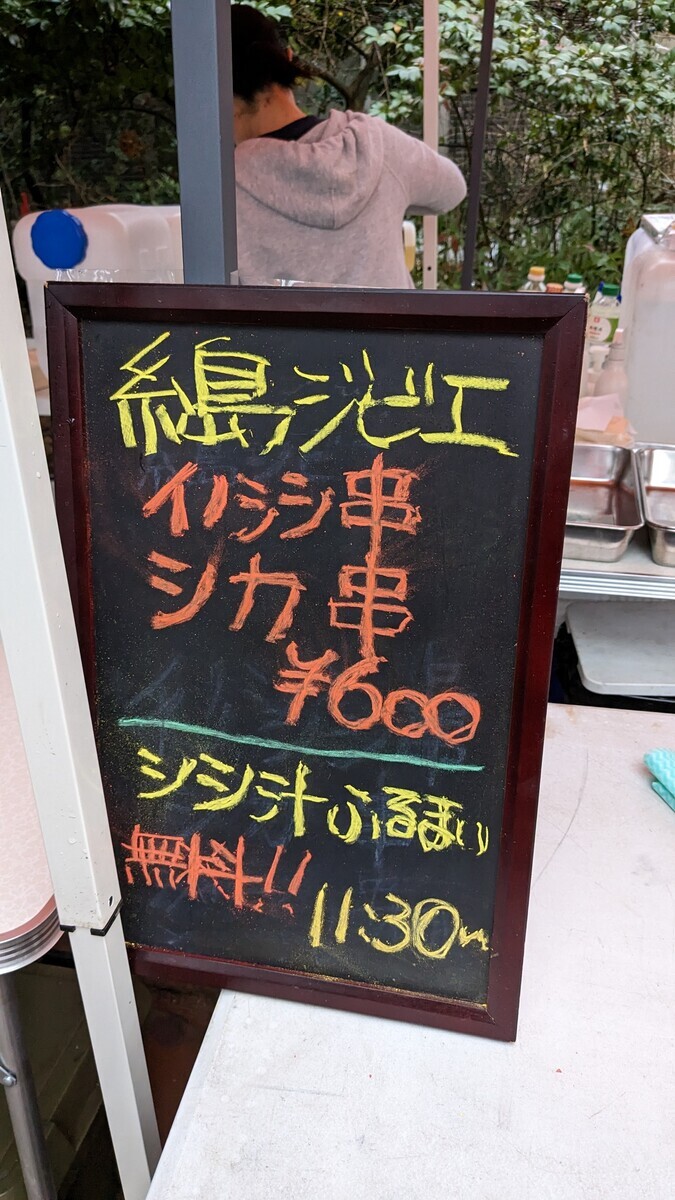 糸島ジビエ
イノシシ串
シカ串
¥600
シシ汁ふるまい
無料!!
11:30〜